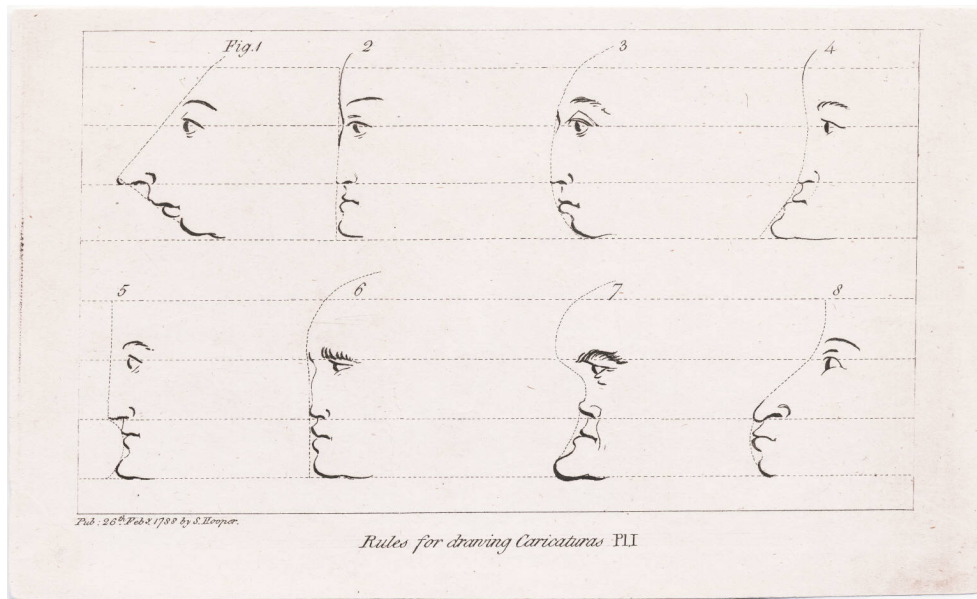 Fig.1 2 3 4
5 6 7 8
Pub: 26th Feby 1788 by S. Hooper.
Rules for drawing Caricaturas Pl.I